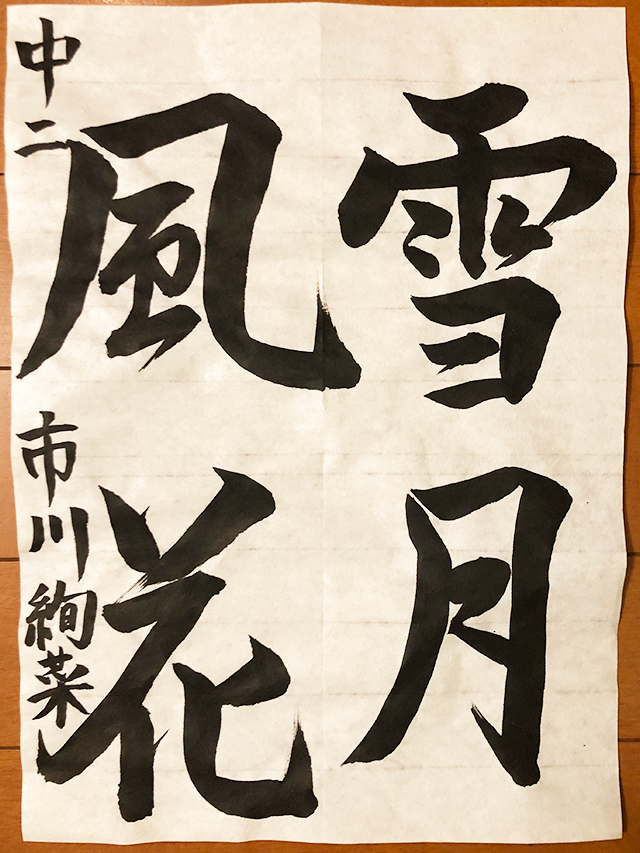 雪月
風花
中二 市川絢菜